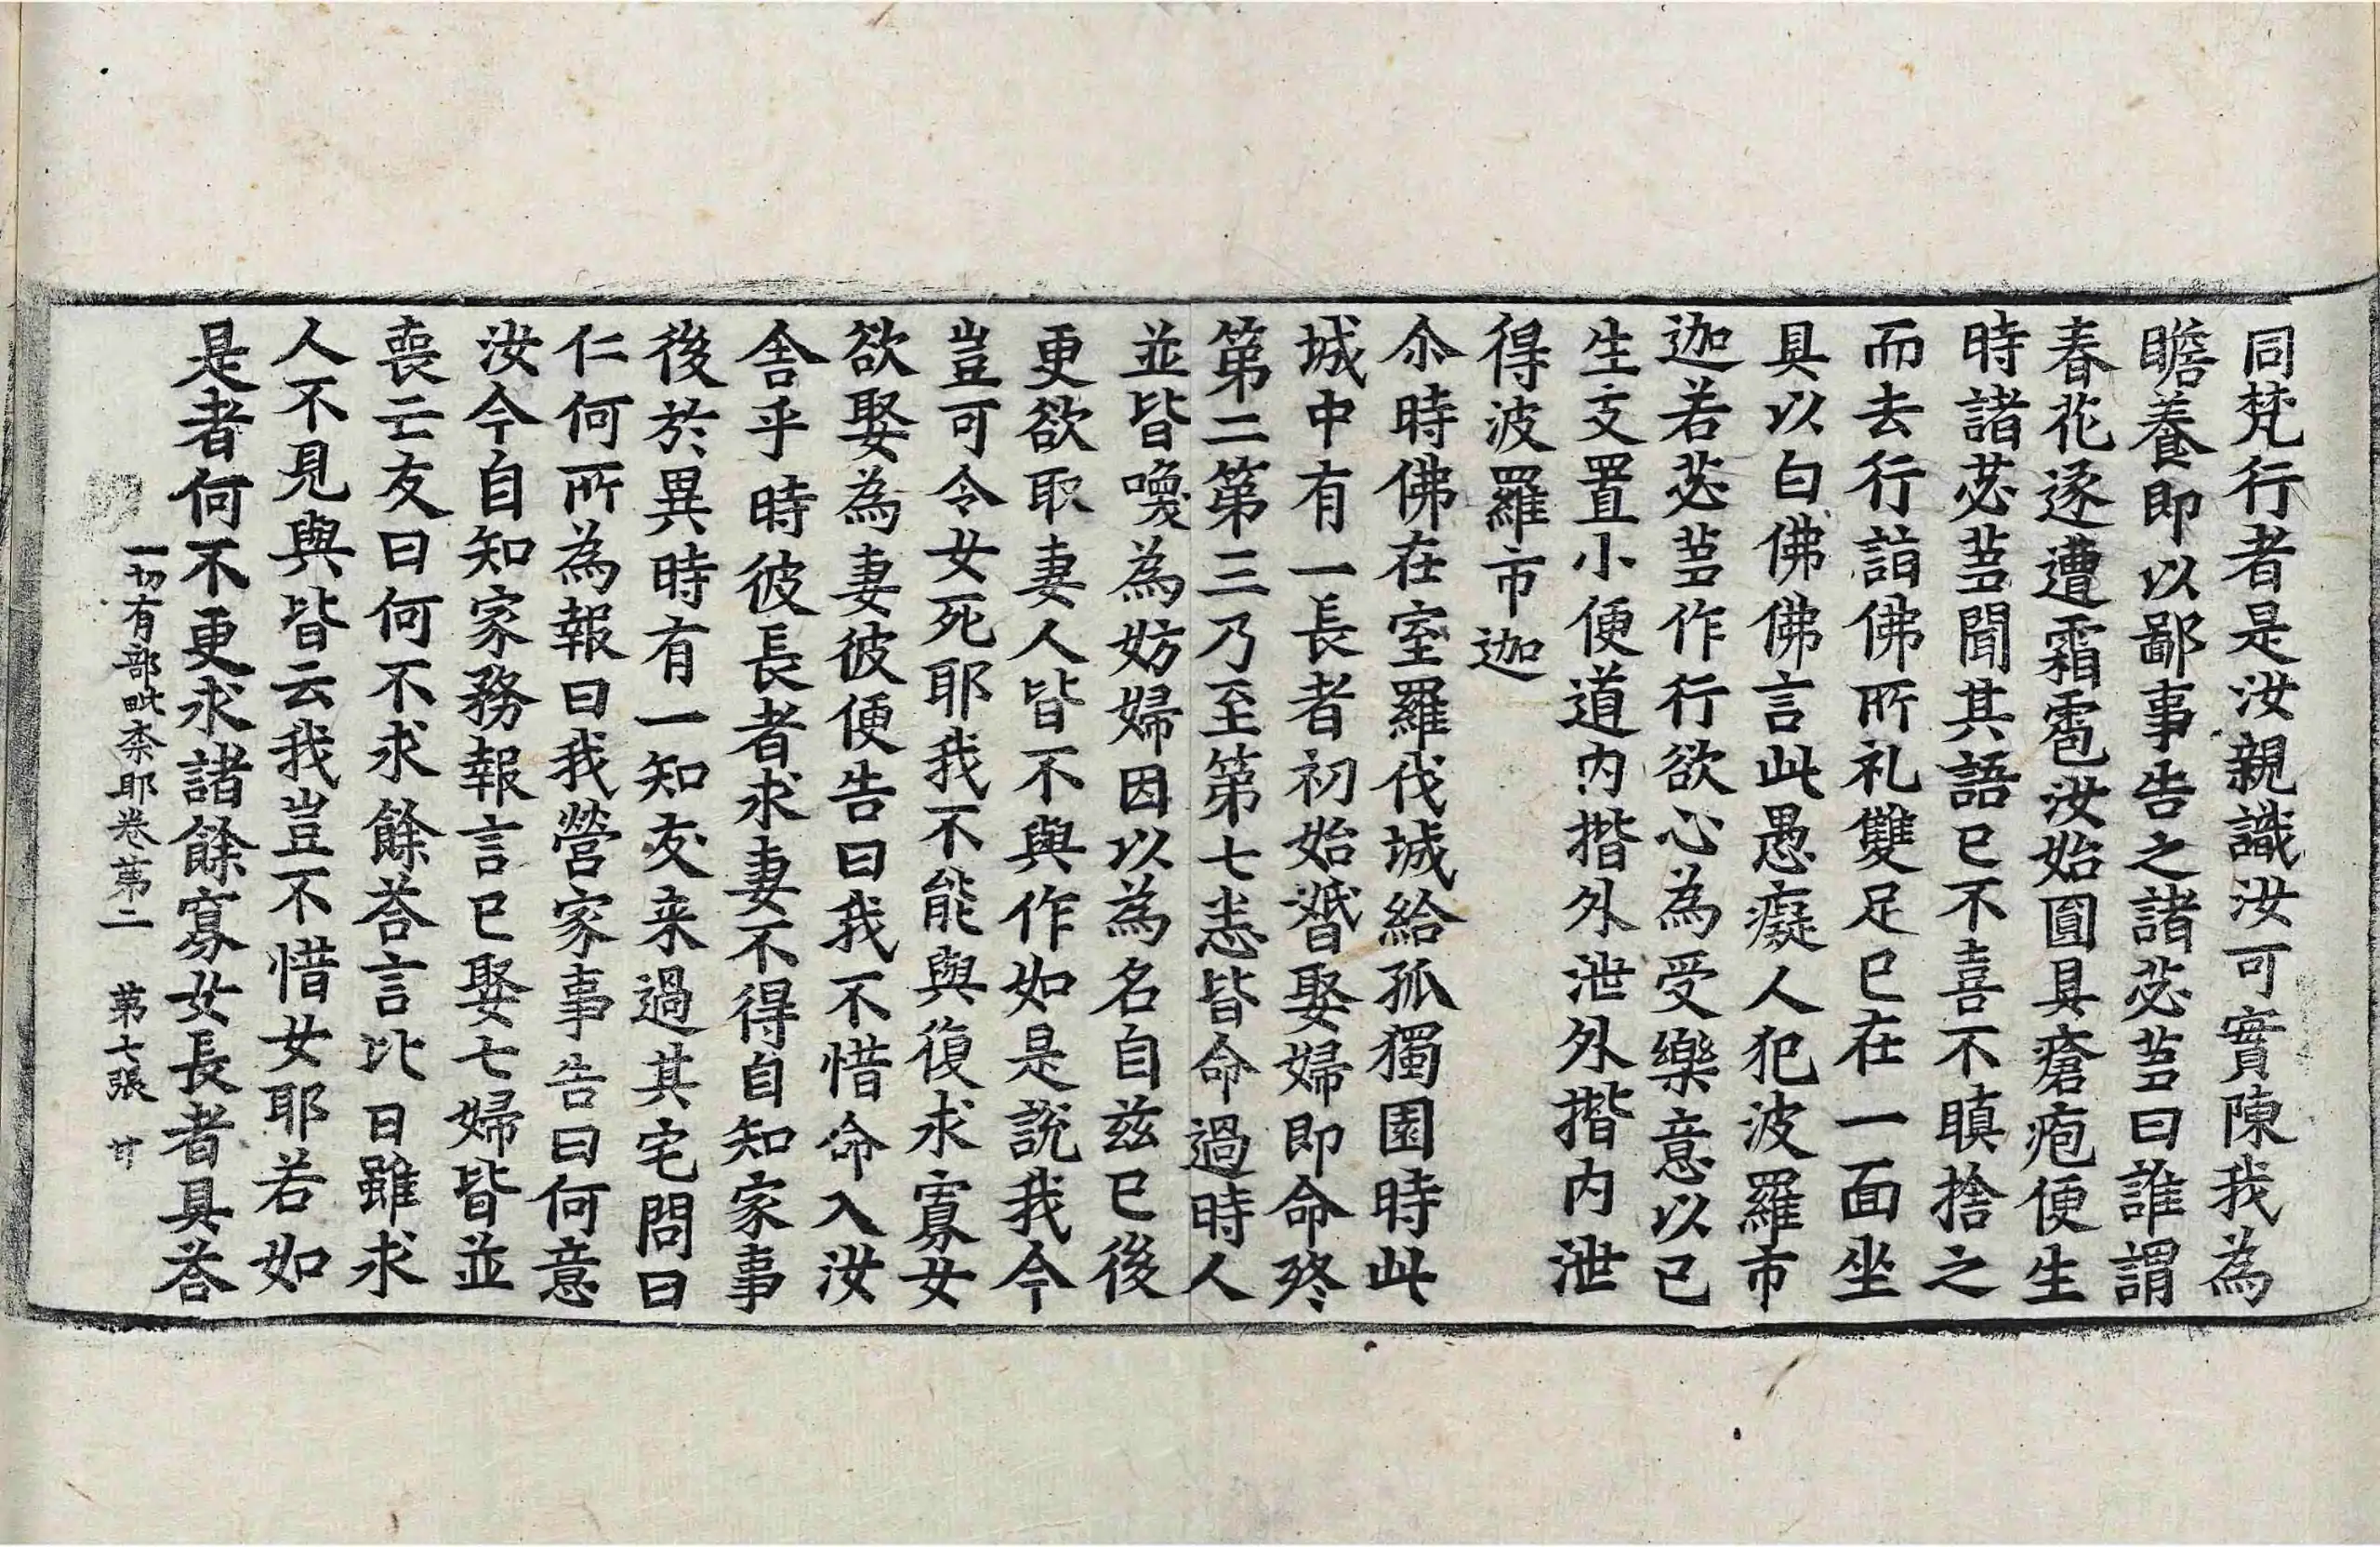 同梵行者是汝親識汝可實陳我為
瞻養即以鄙事告之諸苾蒭曰誰謂
春花逐遭霜雹汝始圓具瘡疱便生
時諸苾蒭聞其語已不喜不瞋捨之
而去行詣佛所礼雙足已在一面坐
具以白佛佛言此愚癡人犯波羅市
迦若苾蒭作行欲心為受樂意以己
生支置小便道内揩外泄外揩内泄
得波羅市迦
尒時佛在室羅伐城給孤獨園時此
城中有一長者初始婚娶婦即命終
第二第三乃至第七恙皆命過時人
並皆喚為妨婦因以為名自兹已後
更欲取妻人皆不與作如是說我今
豈可令女死耶我不能與復求寡女
欲娶為妻彼便告曰我不惜命入汝
舍乎時彼長者求妻不得自知家事
後於異時有一知友来過其宅問曰
仁何所為報曰我營家事告曰何意
汝今自知家務報言已娶七婦皆並
喪亡友曰何不求餘荅言比日雖求
人不見與皆云我豈不惜女耶若如
是者何不更求諸餘寡女長者具荅
一切有部毗柰耶卷苐二　苐七張　甘